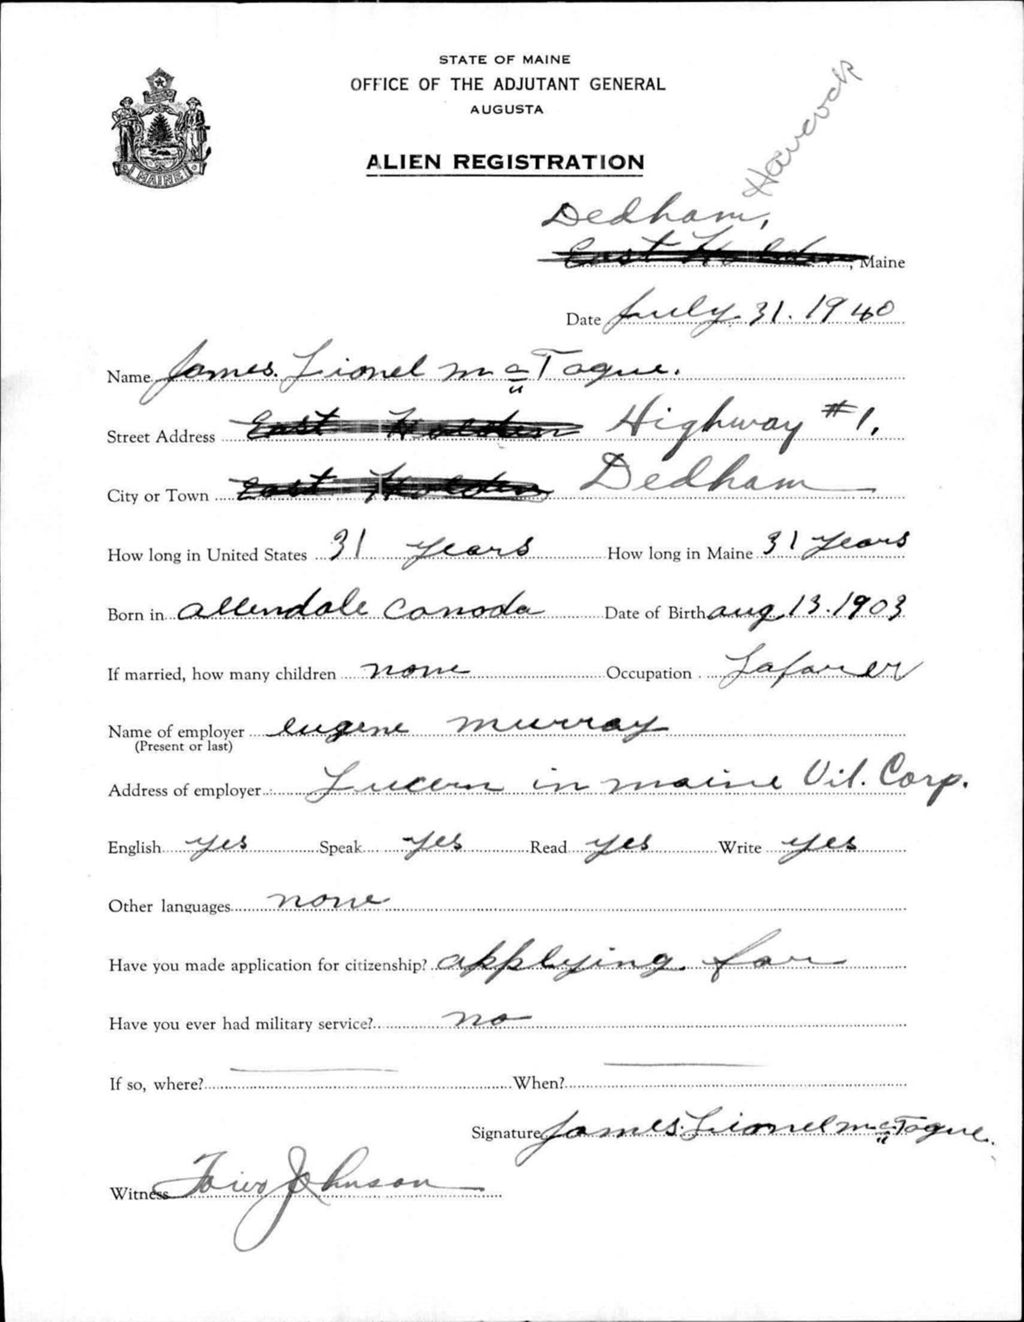 STATE OF MAINE
OFFICE OF THE ADJUTANT GENERAL
AUGUSTA
MAINE
ALIEN REGISTRATION
Hancock
Dedham,
East Holden, Maine
Date July. 31. 1940
Name James. Lionel McTague.
Street Address East Holden Highway #1.
City or Town East Holden Dedham
How long in United States 31 years How long in Maine 31 years
Born in allendale Canada Date of Birth aug, 13. 1903
If married, how many children none Occupation Laforer
Name of employer eugene murray
(Present or last)
Address of employer Lucern in maine Vil. Corp.
English yes Speak yes Read yes Write yes
Other languages none
Have you made application for citizenship? applying. for
Have you ever had military service? no
If so, where? When?
Signature James. Lionel McTague.
Witness Johnson